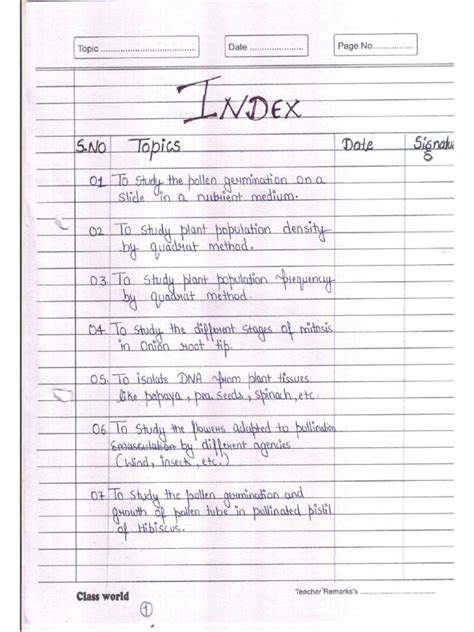 Topic ........................ Date .................... Page No................
INDEX
S.NO Topics Date Signatu
01 To study the pollen germination on a
slide in a nutrient medium.
02 To study plant population density
by quadrat method.
03 To study plant population frequency
by quadrat method.
04 To study the different stages of mitosis
in Onion root tip.
05. To isolate DNA from plant tissues
like papaya, pea seeds, spinach, etc.
06 To study the flowers adapted to pollination
Emasculation by different agencies
(Wind, insects, etc.)
07 To study the pollen germination and
growth of pollen tube in pollinated pistil
of Hibiscus.
Class world Teacher'Remarks's ...........................
1